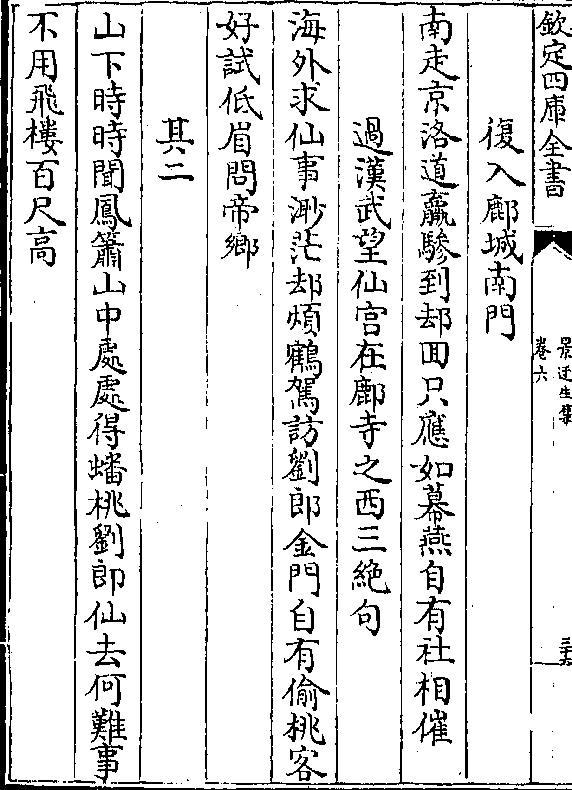 欽定四庫全書
景迂生集
卷六
三十六
復入鄜城南門
南走京洛道羸驂到却回只應如幕燕自有社相催
過漢武望仙宮在鄜寺之西三絶句
海外求仙事渺茫却煩鶴駕訪劉郎金門自有偷桃客
好試低眉問帝鄉
其二
山下時時聞鳳簫山中處處得蟠桃劉郎仙去何難事
不用飛樓百尺高